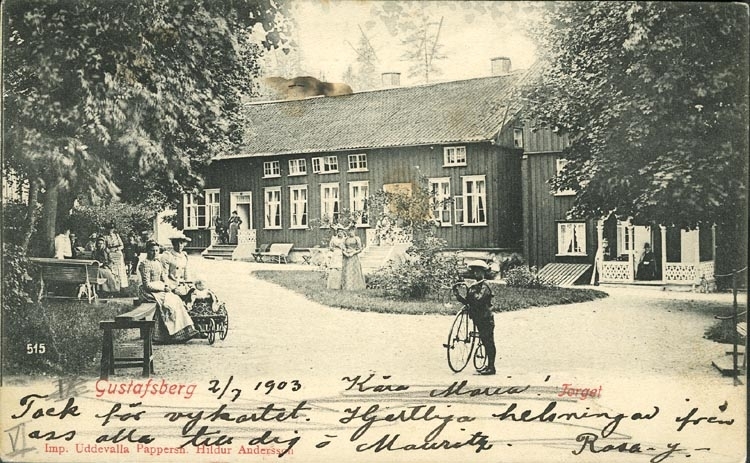 515
Gustafsberg 2/7 1903 Kära Maria! Torget
Tack för vykortet. Hjertliga helsningar från
VI oss alla till dig o Mauritz. Rosa-y-
Imp. Uddevalla Pappersh. Hildur Andersson